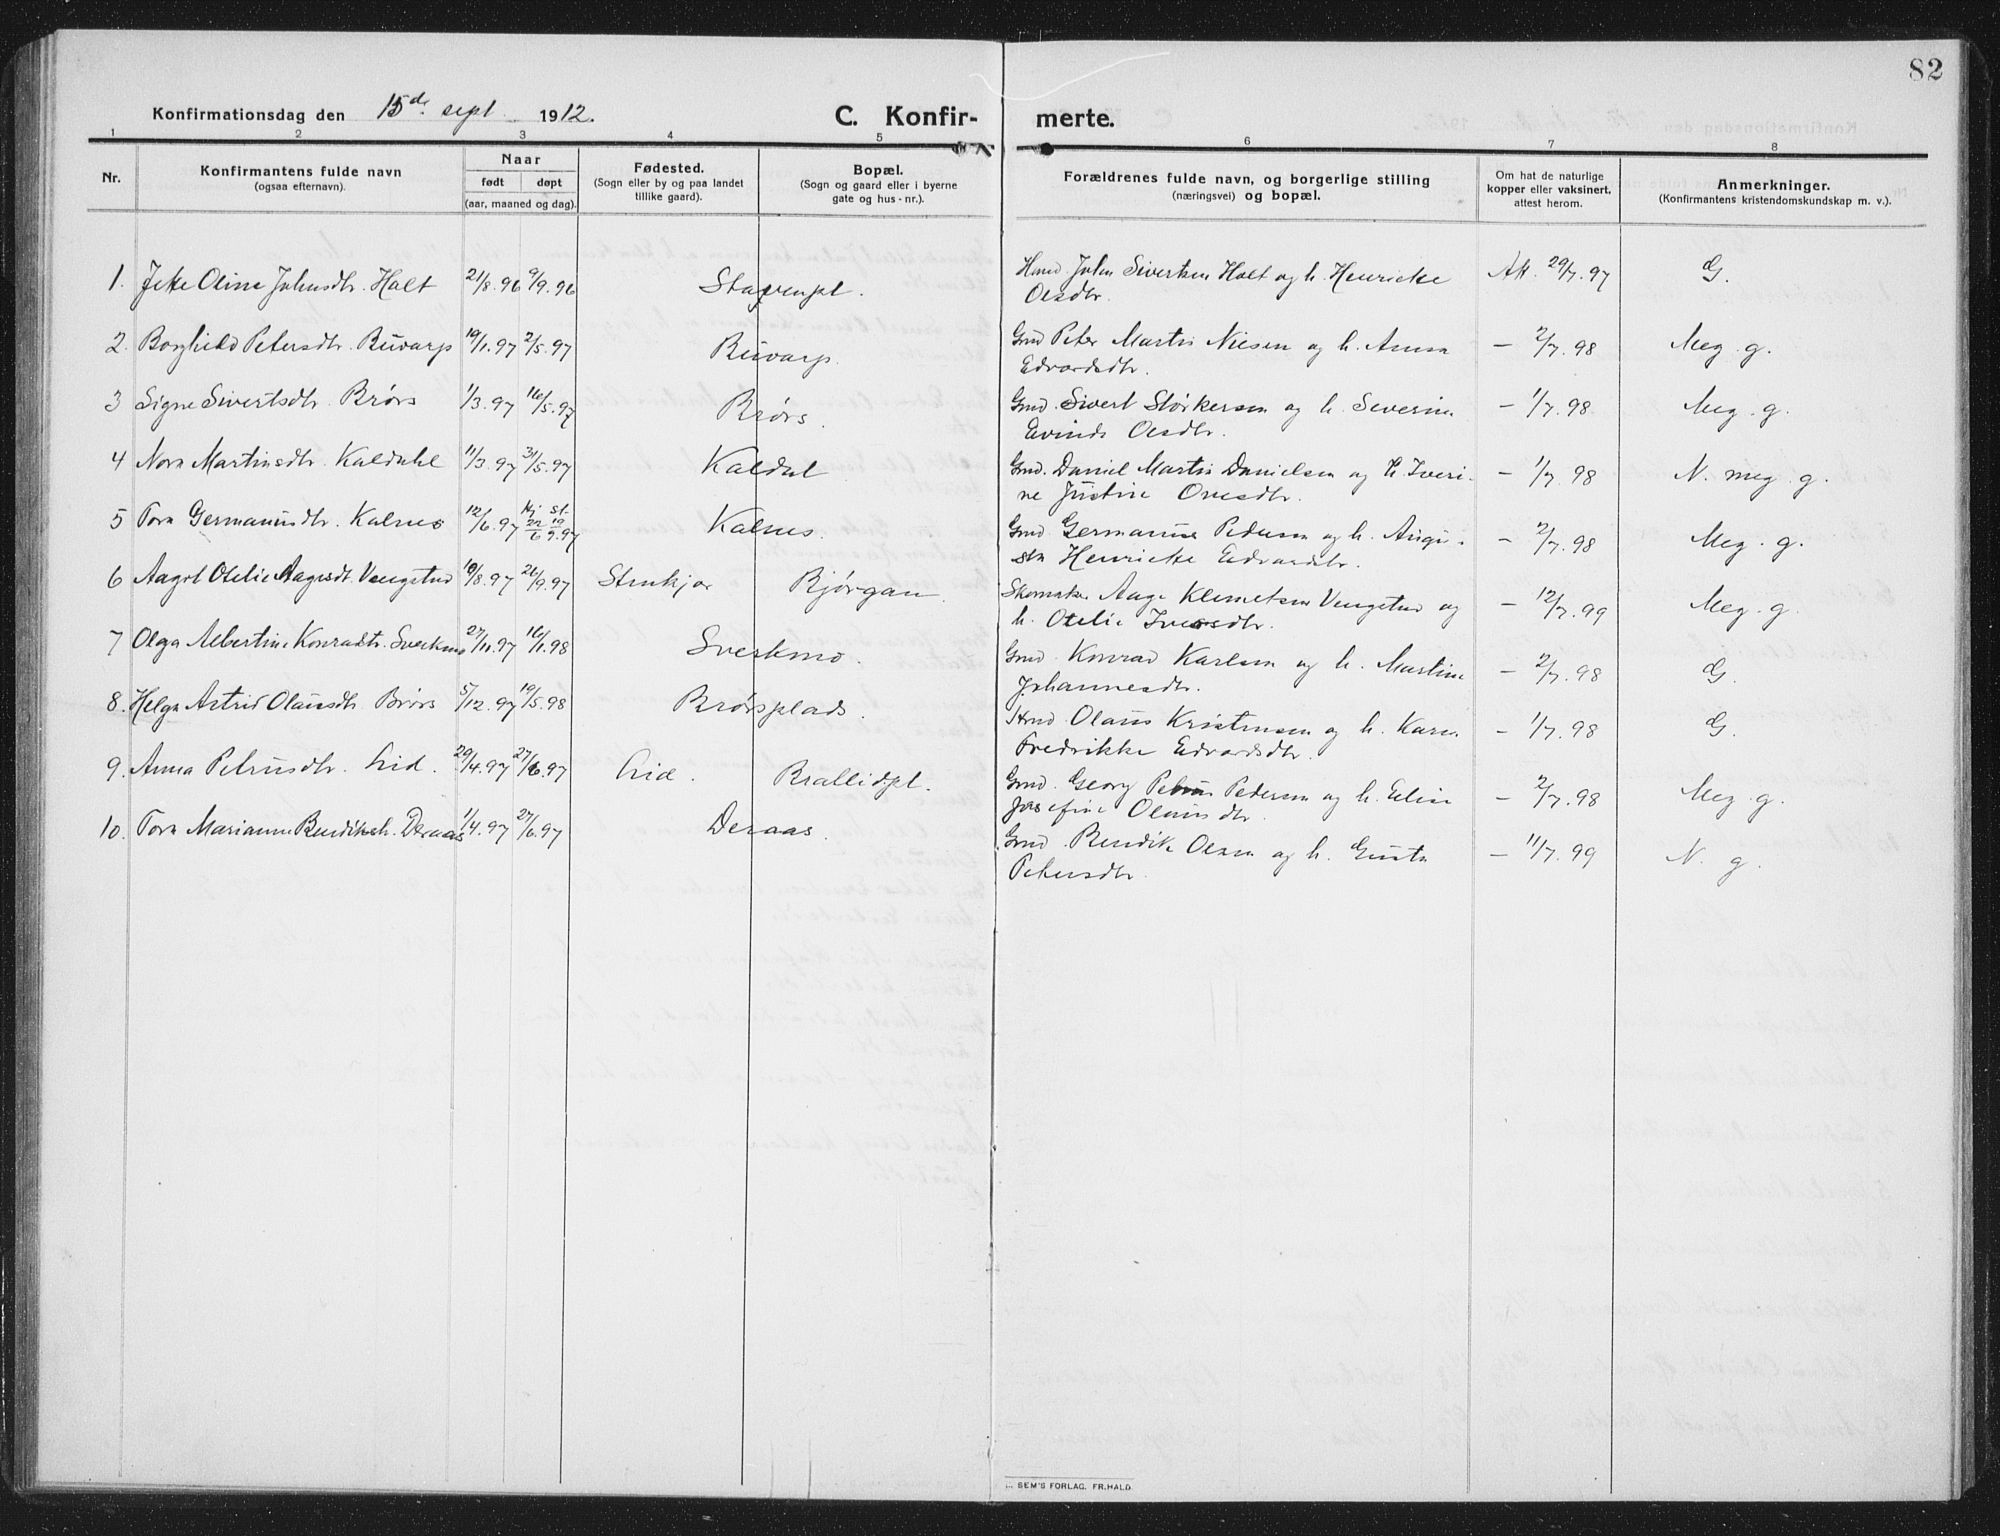 82
Konfirmationsdag den 15de sept. 1912. C. Konfir- merte.
1 2 3 4 5 6 7 8
Nr. Konfirmantens fulde navn (ogsaa efternavn). Naar født døpt (aar, maaned og dag). Fødested. (Sogn eller by og paa landet tillike gaard). Bopæl. (Sogn og gaard eller i byerne gate og hus-nr.). Forældrenes fulde navn, og borgerlige stilling (næringsvei) og bopæl. Om hat de naturlige kopper eller vaksinert, attest herom. Anmerkninger. (Konfirmantens kristendomskundskap m. v.).
1. Oline Johnsdtr. Holt 21/8.96 9/9.96 Stavenpl. John Sivertsen Holt og h. Henrikke At. 29/7.97 G.
Olsdtr.
2. Borghild Petersdtr. Buvarp 19/1.97 2/5.97 Buvarp. Gmd Peter Martin Nilsen og h. Anna — 2/7.98 Meg. g.
Edvardsdtr.
3 Signe Sivertsdtr. Brørs 1/3.97 16/5.97 Brørs. Gmd. Sivert Størkersen og h. Severine — 1/7.98 Meg. g.
Olsdtr.
4 Nora Martinsdtr. Kaldahl 11/3.97 31/5.97 Kaldal Gmd. Daniel Martin Danielsen og h. Iveri- — 1/7.98 N. meg. g.
ne Justine Ovesdtr.
5 Tora Germanusdtr. Kalnes 12/6.97 Hj. 22/6 st. 19/9.97 Kalnes. Gmd Germanus Pedersen og h. Augu- — 2/7.98 Meg. g.
sta Henrikke Edvardsdtr.
6 Aagot Otelie Aagesdt. Vengstad 10/8.97 26/9.97 Stenkjær Bjørgan. Skomaker Aage Klemetsen Vengstad og — 12/7.99 Meg. g.
h. Otelie Iversdtr.
7 Olga Albertine Konradtr. Sveskmo 27/11.97 16/1.98 Sveskmo. Gmd Konrad Karlsen og h. Martine — 2/7.98 G.
Johannesdtr.
8. Helga Astrid Olausdtr Brørs 5/12.97 19/5.98 Brørsplads. Hmd Olaus Kristensen og h. Karen — 1/7.98 G.
Fredrikke Edvardsdtr.
9. Anna Petrusdtr. Lid. 29/4.97 27/6.97 Lid. Brallidpl. Gmd. Georg Petrus Pedersen og h. Elise — 2/7.98 Meg. g.
Josefine Olausdtr.
10. Tora Marianne Bendiksdt. Deraas 1/4.97 27/6.97 Deraas. Gmd. Bendik Olsen og h. Gusta — 11/7.99 N. g.
Petersdtr.
SEM'S FORLAG. FR.HALD.